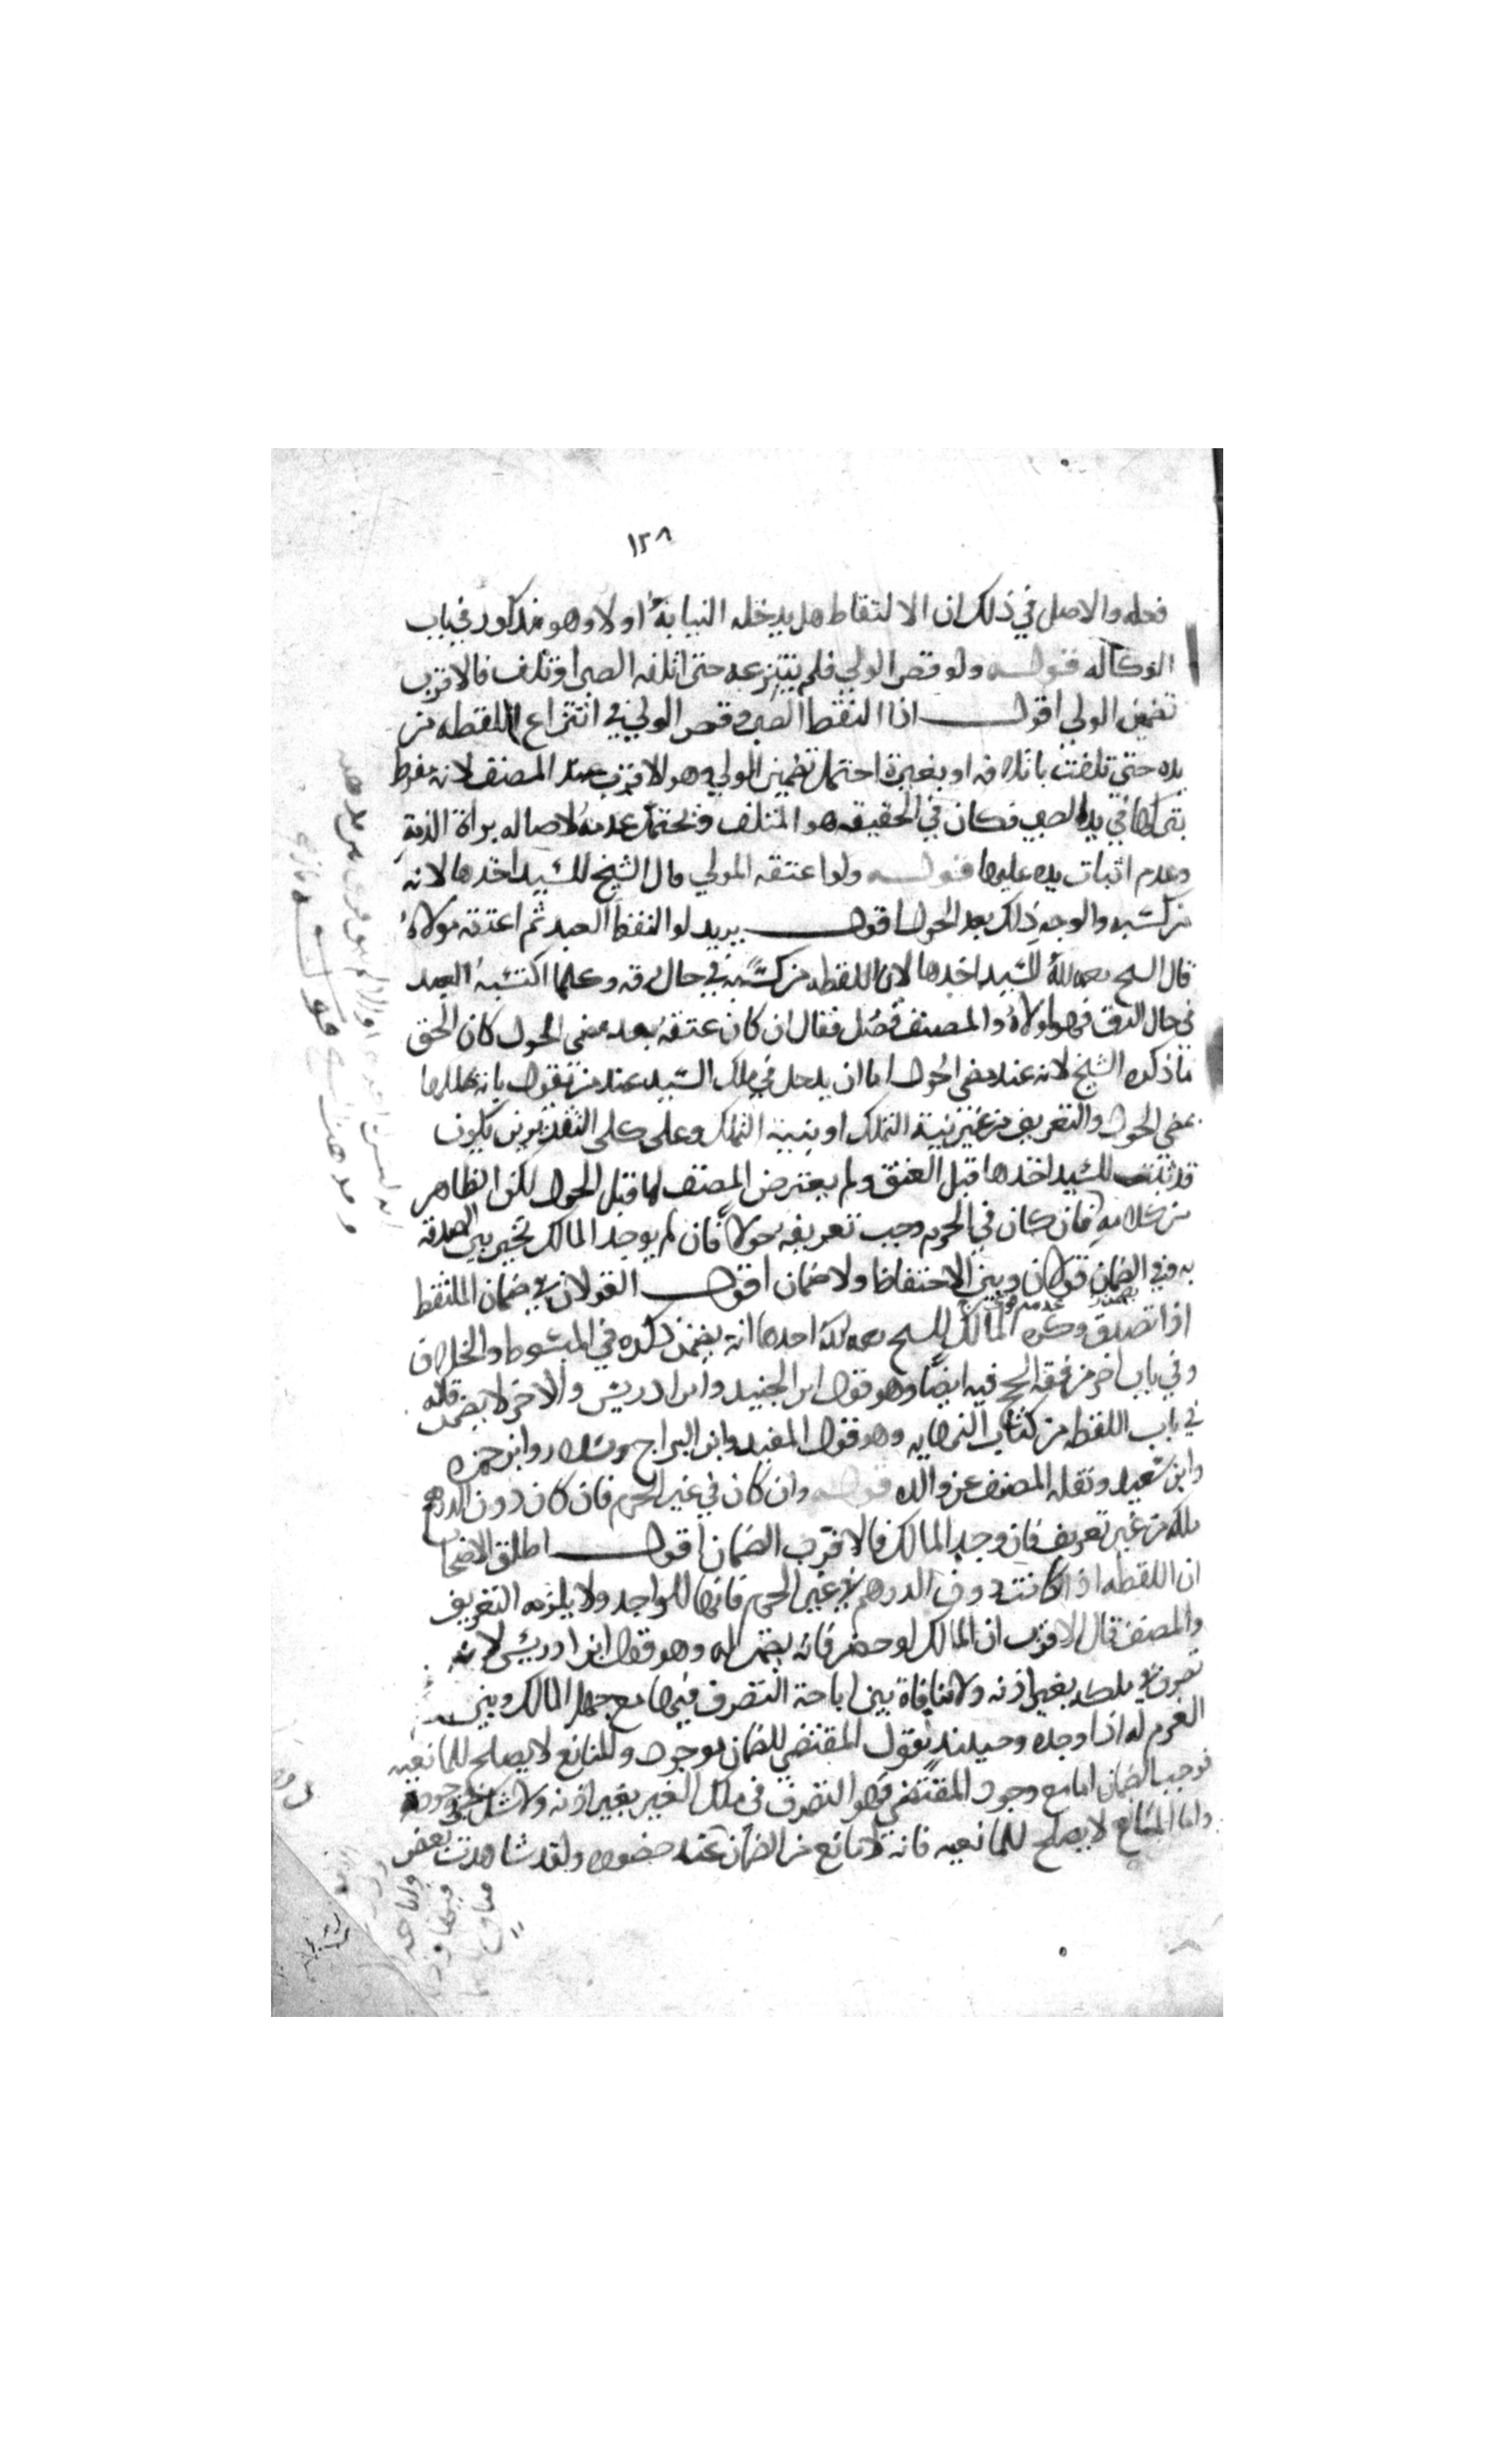 ١٢٨
فعله والاصل في ذلك ان الالتقاط هل يدخله النيابة او لا وهو مذكور في باب
الوكاله قوله ولو قصر الولي فلم ينتزعه حتى اتلفه الصبي او تلف فالاقرب
تضمين الولي اقول اذا التقط الصبي وقصر الولي في انتزاع اللقطه من
يده حتى تلفت باتلافه او بغيره احتمل تضمين الولي وهو الاقرب عند المصنف لانه مفرط
بتركها في يد الصبي فكان في الحقيقه هو المتلف ويحتمل عدمه لاصاله براة الذمة
وعدم اثبات يده عليها قوله ولو اعتقه المولي قال الشيخ للسيد اخذها لانه
من كسبه والوجه ذلك بعد الحول اقول يريد لو التقط العبد ثم اعتقه مولاه
قال الشيخ رحمه الله للسيد اخذها لان اللقطه من كسبه في حال رقه وكلما اكتسبه العبد
في حال الرق فهو لمولاه والمصنف فصل فقال ان كان عتقه بعد مضي الحول كان الحق
ما ذكره الشيخ لانه عند مضي الحول اما ان يدخل في ملك السيد عند من يقول بانه يملكها
بمضي الحول والتعريف من غير نية التملك او بنية التملك وعلى كلى التقديرين يكون
قد ثبت للسيد اخذها قبل العتق ولم يعترض المصنف لما قبل الحول لكن الظاهر
من كلامه فان كان في الحرم وجب تعريفه حولا فان لم يوجد المالك تخير بين الصدقه
به وفي الضمان قولان وبين الاحتفاظ ولا ضمان اقول القولان في ضمان الملتقط
اذا تصدق وكره المالك للشيخ رحمه الله احدها انه يضمن ذكره في المبسوط والخلاف
وفي باب اخر من فقه الحج فيه ايضا وهو قول ابن الجنيد وابن ادريس والاخر لا يضمن قاله
في باب اللقطه من كتاب النهايه وهو قول المفيد وابن البراج وسلار وابن حمزه
وابن سعيد ونقله المصنف عن والده قوله وان كان في غير الحرم فان كان دون الدرهم
ملكه من غير تعريف فان وجد المالك فالاقرب الضمان اقول اطلق الاصحاب
ان اللقطه اذا كانت دون الدرهم في غير الحرم فانها للواجد ولا يلزمه التعريف
والمصنف قال الاقرب ان المالك لو حضر فانه يضمن له وهو قول ابن ادريس لانه
تصرف في ملكه بغير اذنه ولا منافاة بين اباحة التصرف فيها مع جهل المالك وبين
الغرم له اذا وجده وحينئذ نقول المقتضي للضمان موجود والمانع لا يصلح للمانعيه
فوجب الضمان اما مع وجود المقتضي فهو التصرف في ملك الغير بغير اذنه ولا شك في وجوده
واما المانع لا يصلح للمانعيه فانه لا مانع من الضمان عند حضوره ولقد شاهدت بعض